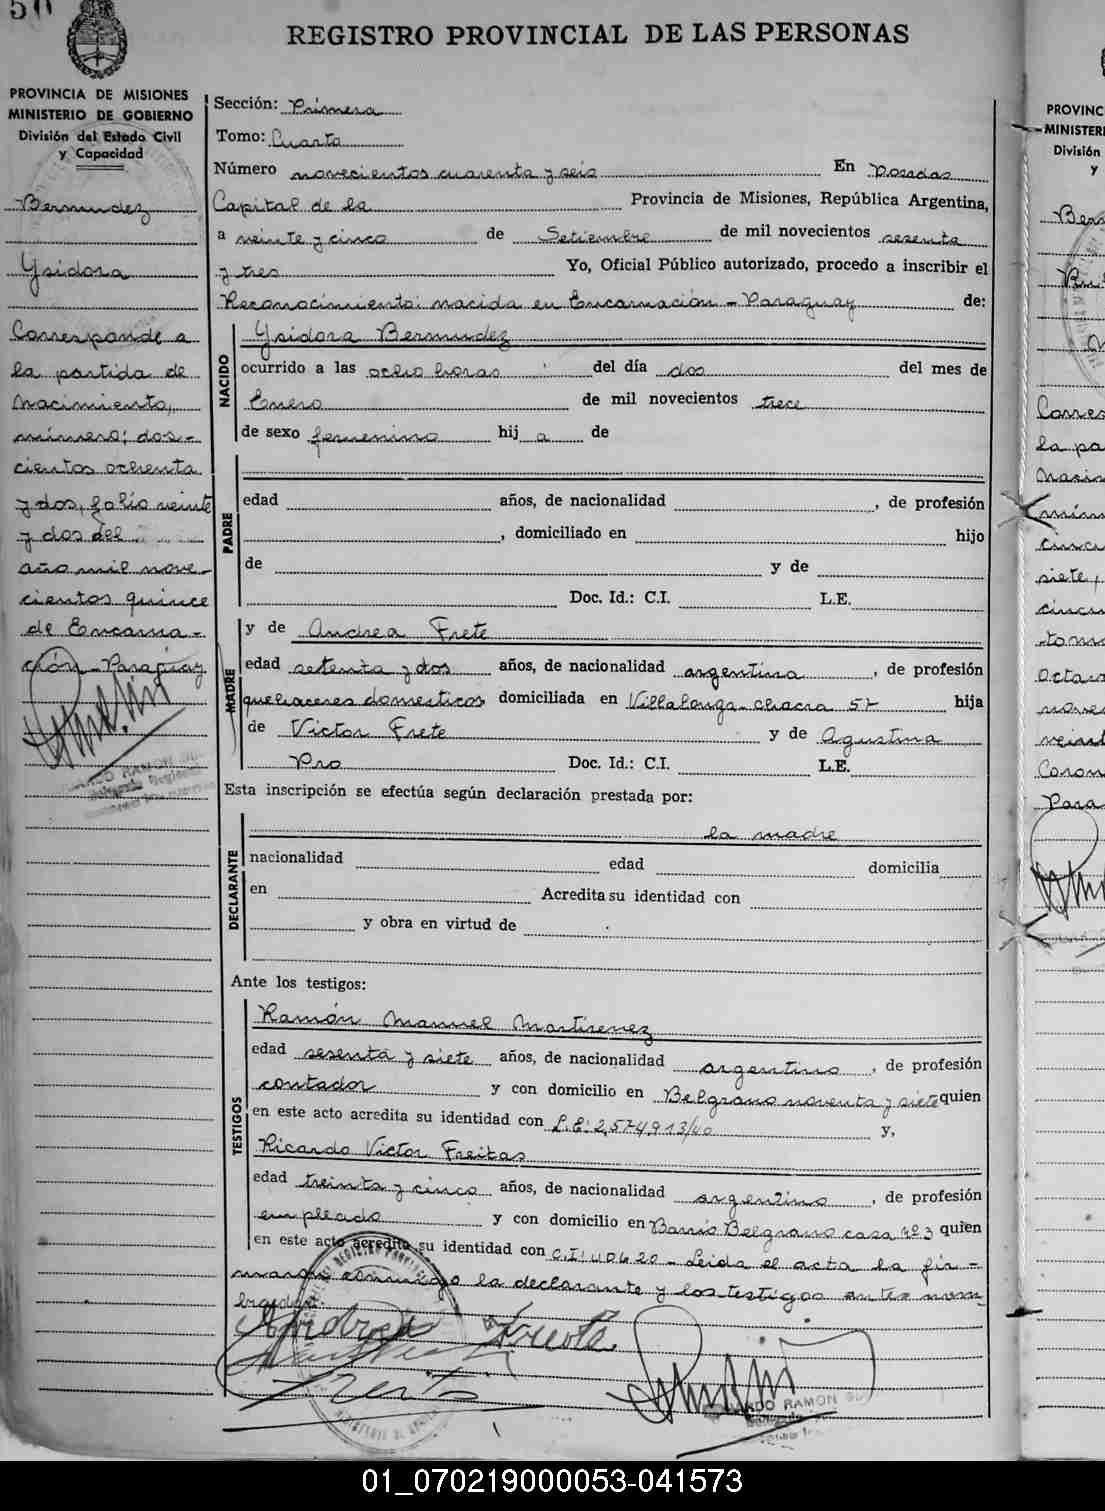 50
REGISTRO PROVINCIAL DE LAS PERSONAS
PROVINCIA DE MISIONES
MINISTERIO DE GOBIERNO
División del Estado Civil
y Capacidad
Bermudez
Ysidora
Corresponde a
la partida de
nacimiento,
número; dos-
cientos ochenta
y dos, folio veinte
y dos del
año mil nove-
cientos quince
de Encarna-
ción-Paraguay
Sección: Primera
Tomo: Cuarto
Número novecientos cuarenta y seis En Posadas
Capital de la Provincia de Misiones, República Argentina,
a veinte y cinco de Setiembre de mil novecientos sesenta
y tres Yo, Oficial Público autorizado, procedo a inscribir el
Reconocimiento: nacida en Encarnación-Paraguay de:
NACIDO
Ysidora Bermudez
ocurrido a las ocho horas del día dos del mes de
Enero de mil novecientos trece
de sexo femenino hij a de
PADRE
edad años, de nacionalidad , de profesión
, domiciliado en hijo
de y de
Doc. Id.: C.I. L.E.
MADRE
y de Andrea Frete
edad setenta y dos años, de nacionalidad argentina, de profesión
quehaceres domesticos domiciliada en Villalonga-chacra 57 hija
de Victor Frete y de Agustina
Pro Doc. Id.: C.I. L.E.
Esta inscripción se efectúa según declaración prestada por:
DECLARANTE
la madre
nacionalidad edad domicilia
en Acredita su identidad con
y obra en virtud de
Ante los testigos:
TESTIGOS
Ramón Manuel Martirenez
edad sesenta y siete años, de nacionalidad argentino, de profesión
contador y con domicilio en Belgrano noventa y siete quien
en este acto acredita su identidad con L.E: 2,574,913/40 y,
Ricardo Victor Freitas
edad treinta y cinco años, de nacionalidad argentino, de profesión
empleado y con domicilio en Barrio Belgrano casa Nº3 quien
en este acto acredita su identidad con C.I: 40620-Leida el acta la fir-
man conmigo la declarante y los testigos antes nom-
brados.
Andrea
RAMON
PROVINC
MINISTERI
División
y
Corres
la pa
01_070219000053-041573